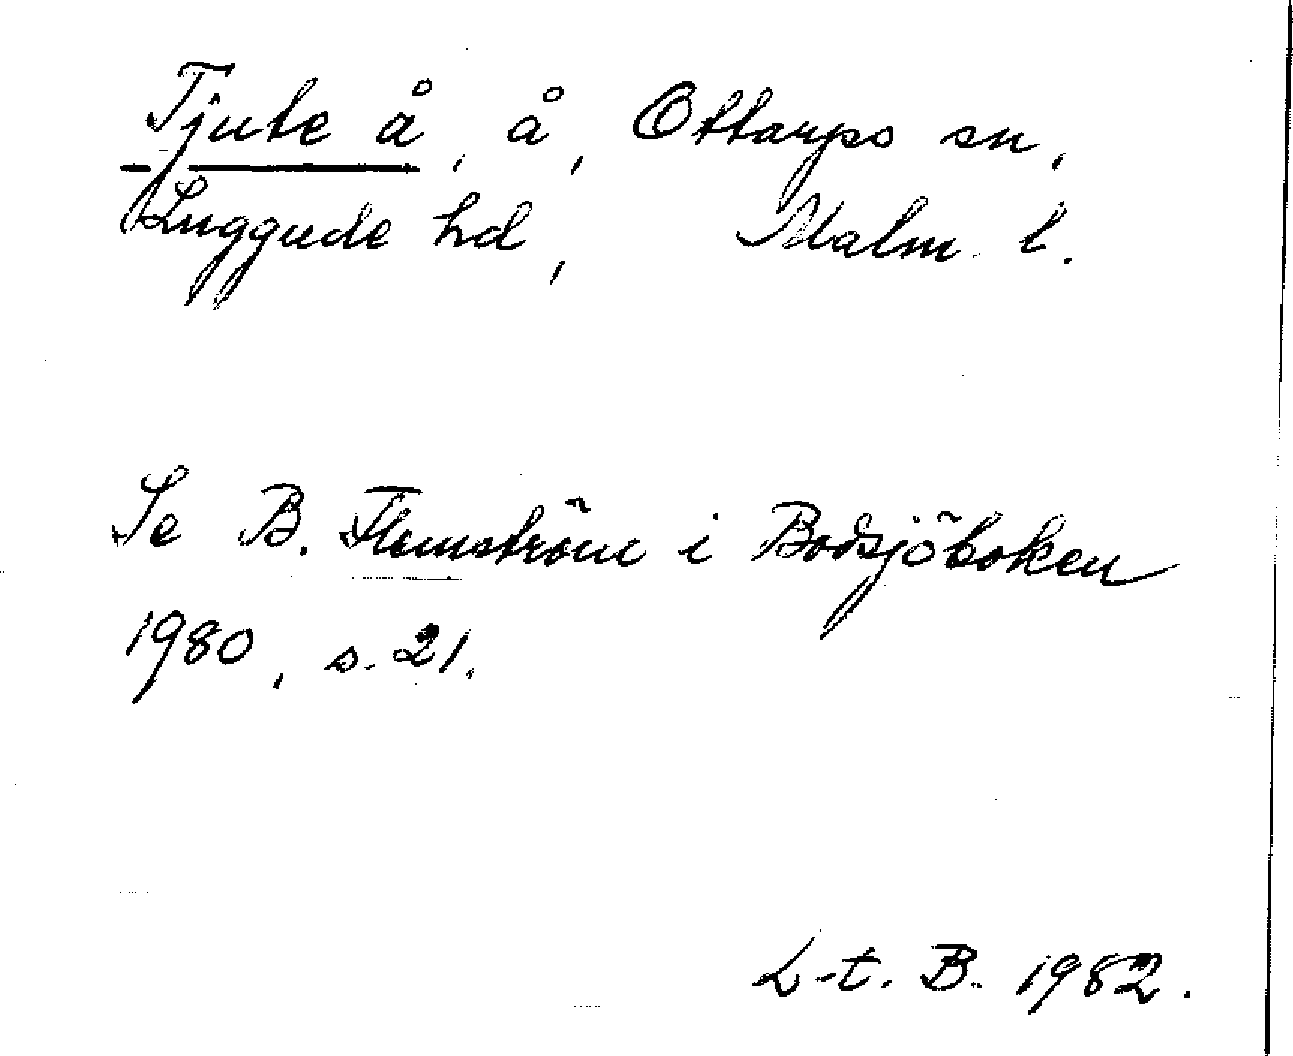 Tjute å, å, Ottarps sn,
Luggude hd, Malm. l.
Se B. Flemström i Bodsjöboken
1980, s. 21.
L-t. B. 1982.